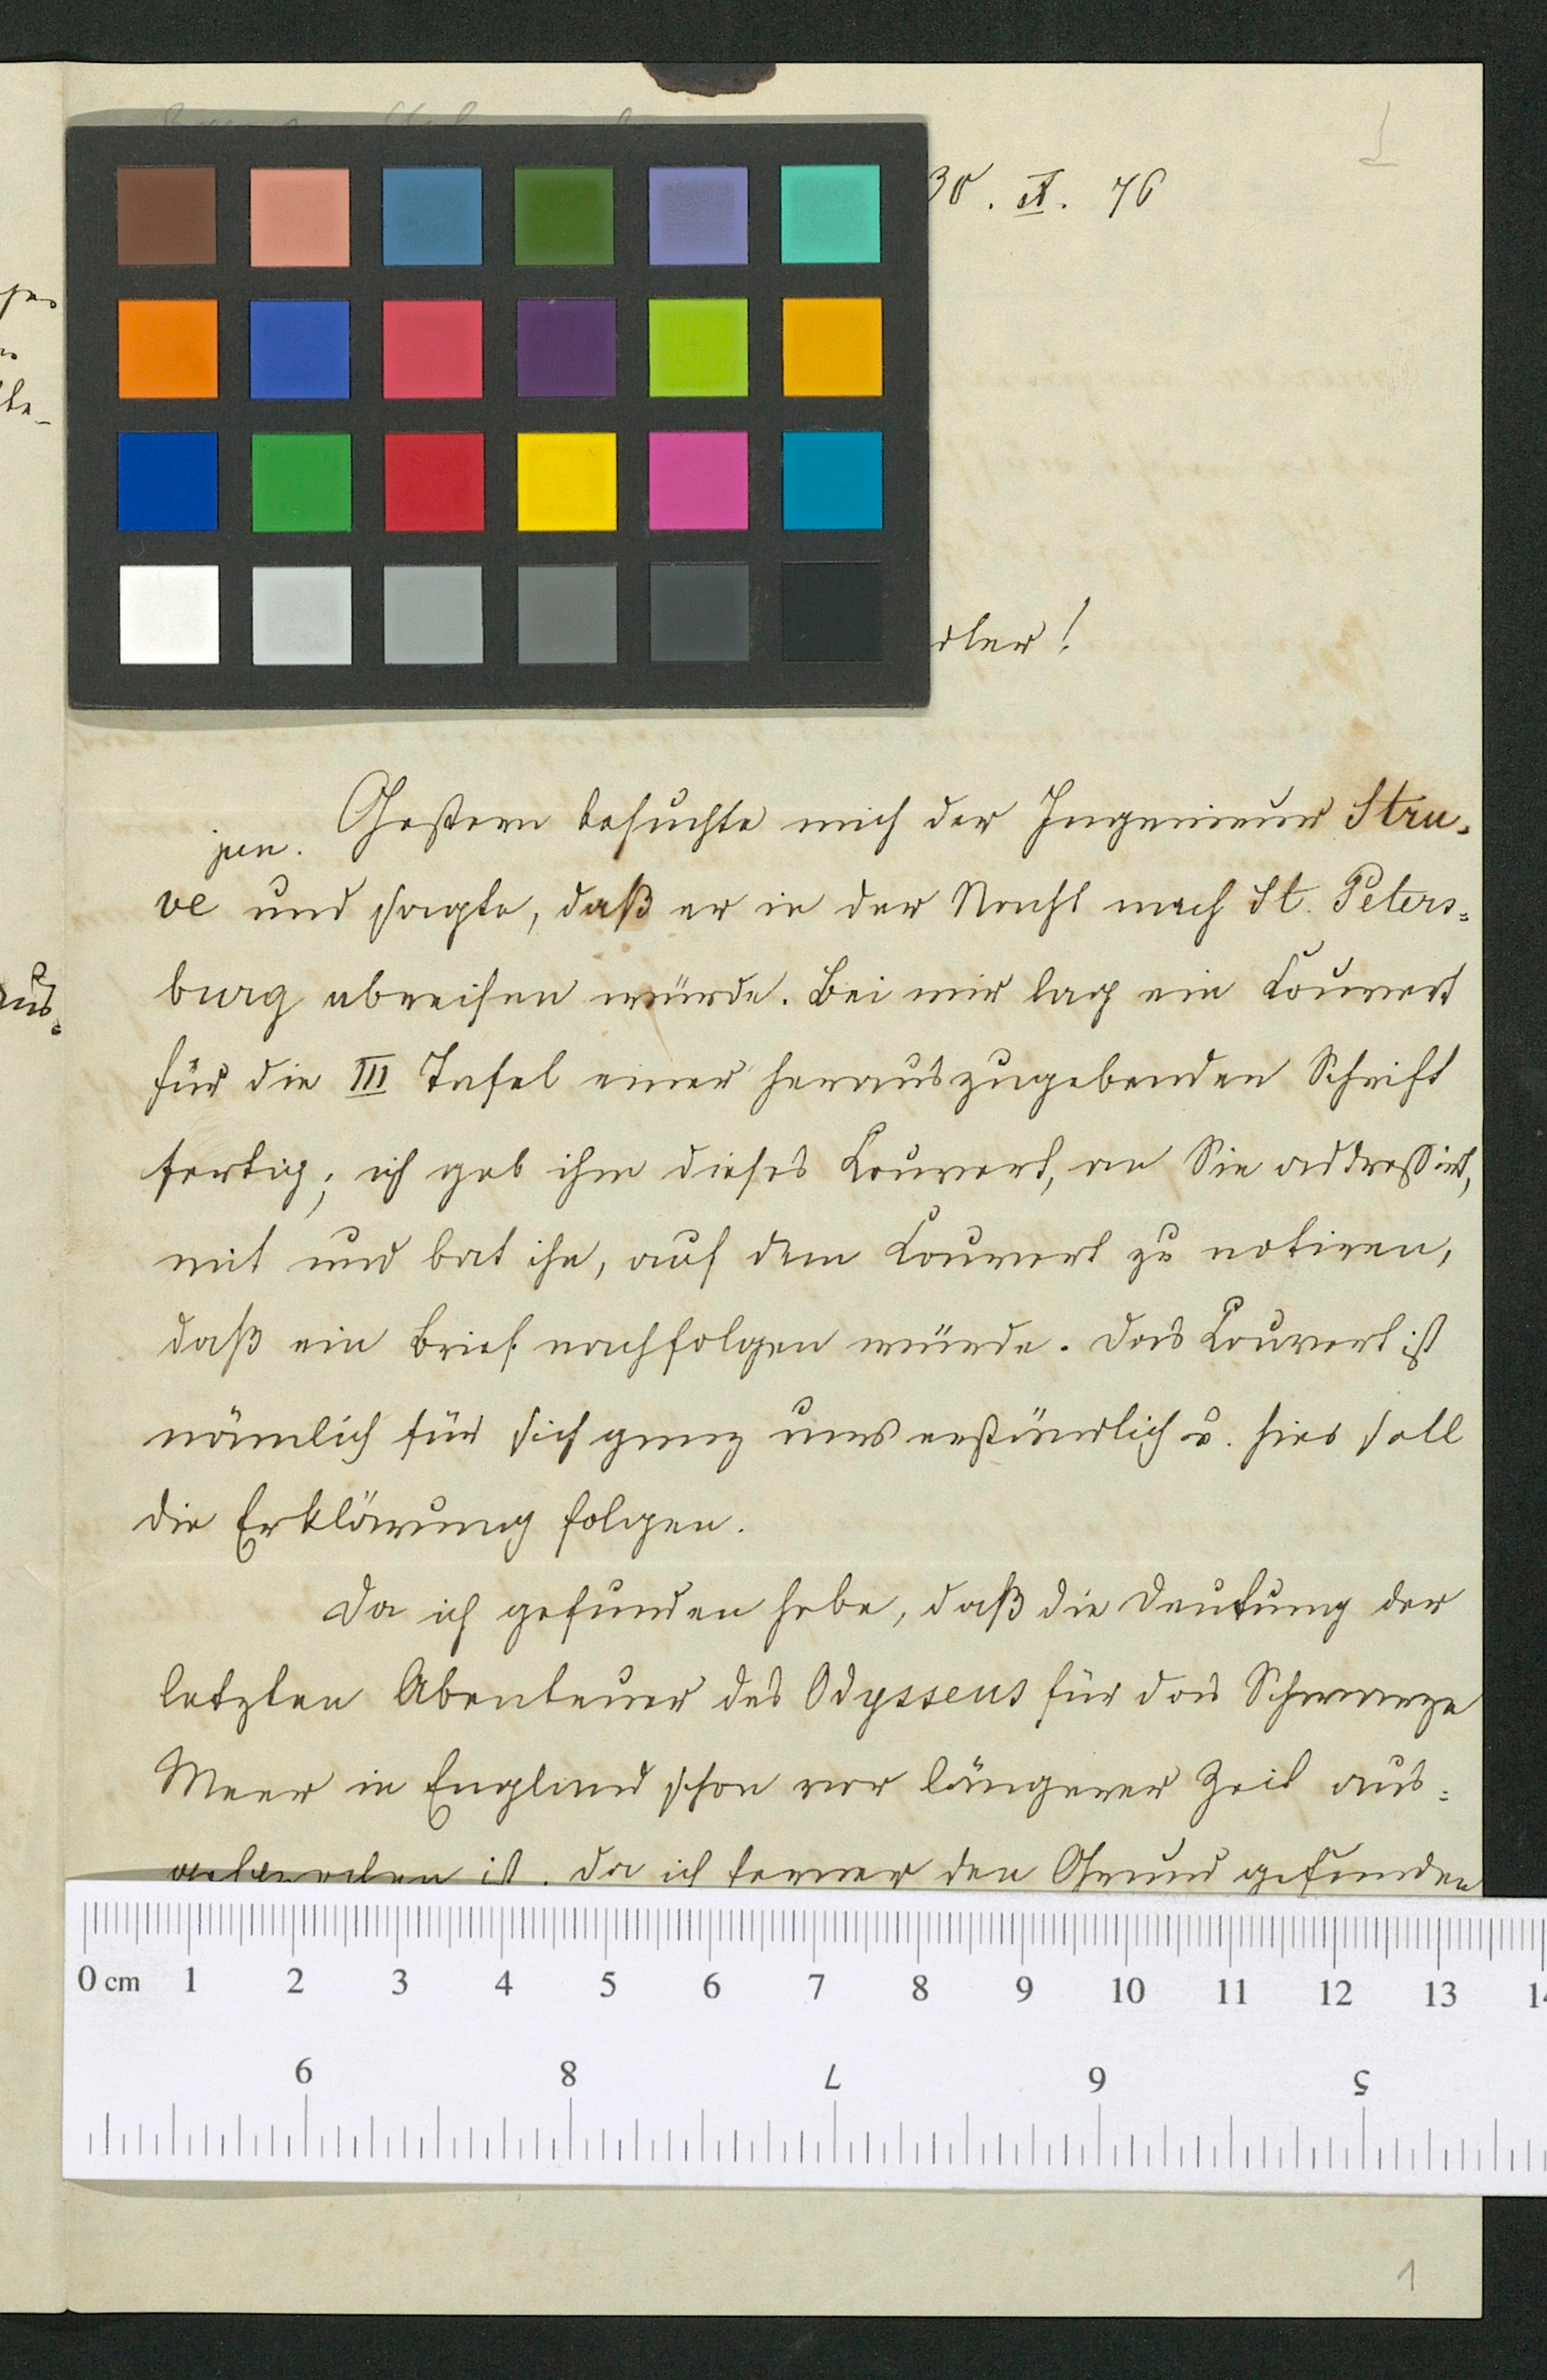 30. IX. 76
dler!
Gestern besuchte mich der Ingenieur Stru-
jun.
ve und sagte, daß er in der Nacht nach St. Peters-
burg abreisen würde. Bei mir lag ein Couvert
für die III Tafel einer herauszugebenden Schrift
fertig; ich gab ihm dieses Couvert, an Sie addressirt,
mit und bat ihn, auf dem Couvert zu notiren,
daß ein Brief nachfolgen würde. Das Couvert ist
nämlich für sich ganz unverständlich u. hier soll
die Erklärung folgen.
Da ich gefunden habe, daß die Deutung der
letzten Abenteuer des Odysseus für das Schwarze
Meer in England schon vor längerer Zeit aus-
gesprochen ist, da ich ferner den Grund gefunden
0 cm 1 2 3 4 5 6 7 8 9 10 11 12 13 14
9 8 7 6 5
1